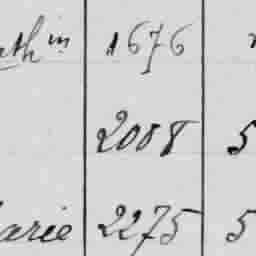 in 1676
2008 5
arie 2275 5